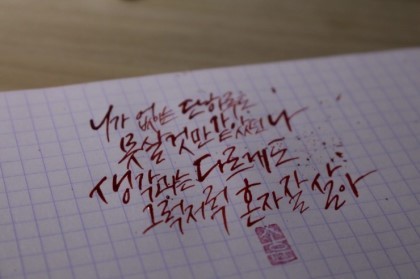 니가 없는 단 하루도
못살 것만 같았던 나
생각과는 다르게도
그럭저럭 혼자 잘 살아